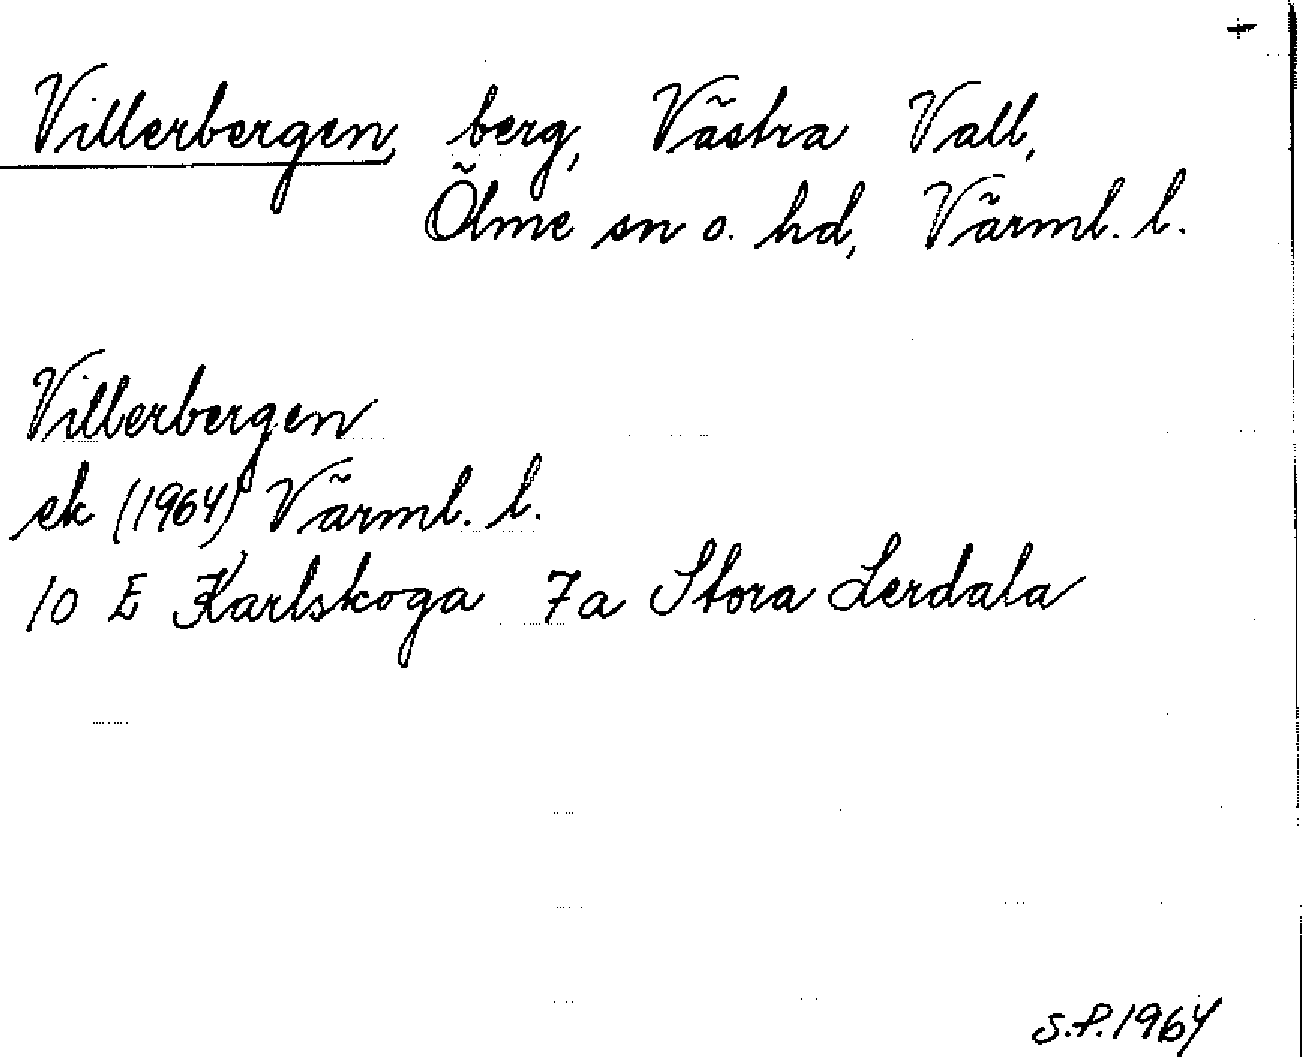 +
Villerbergen, berg, Västra Vall,
Ölme sn o. hd, Värml. l.
Villerbergen
ek (1964) Värml. l.
10 E Karlskoga 7a Stora Lerdala
S.P. 1964